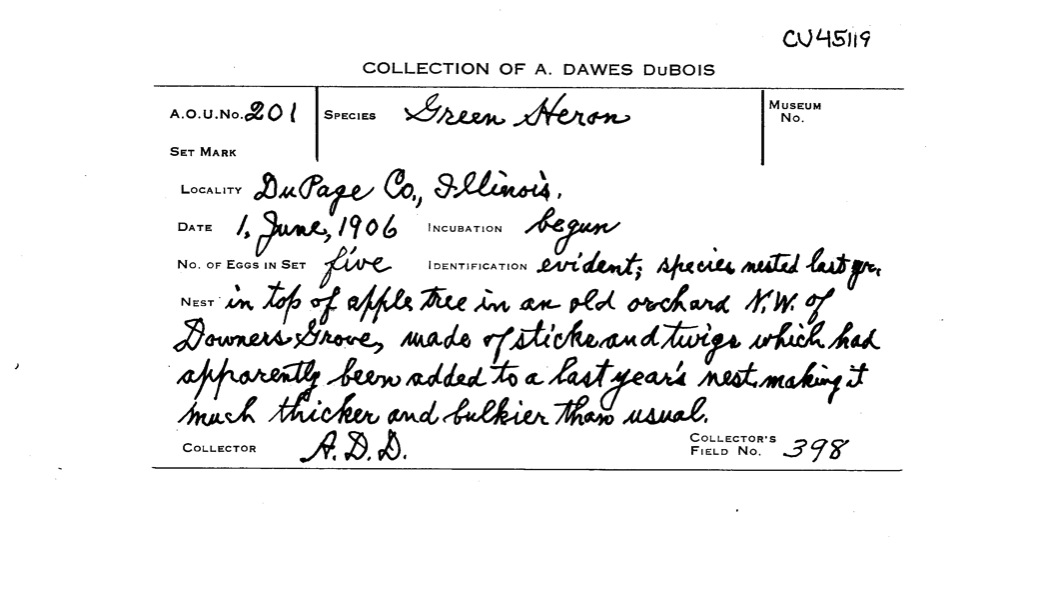 CU45119
COLLECTION OF A. DAWES DUBOIS
A.O.U.No. 201 SPECIES Green Heron MUSEUM No.
SET MARK
LOCALITY DuPage Co., Illinois.
DATE 1, June, 1906 INCUBATION begun
No. OF EGGS IN SET five IDENTIFICATION evident; species nested last yr.
NEST in top of apple tree in an old orchard N.W. of
Downers Grove, made of sticks and twigs which had
apparently been added to a last year's nest, making it
much thicker and bulkier than usual.
COLLECTOR A.D.D. COLLECTOR'S FIELD No. 398